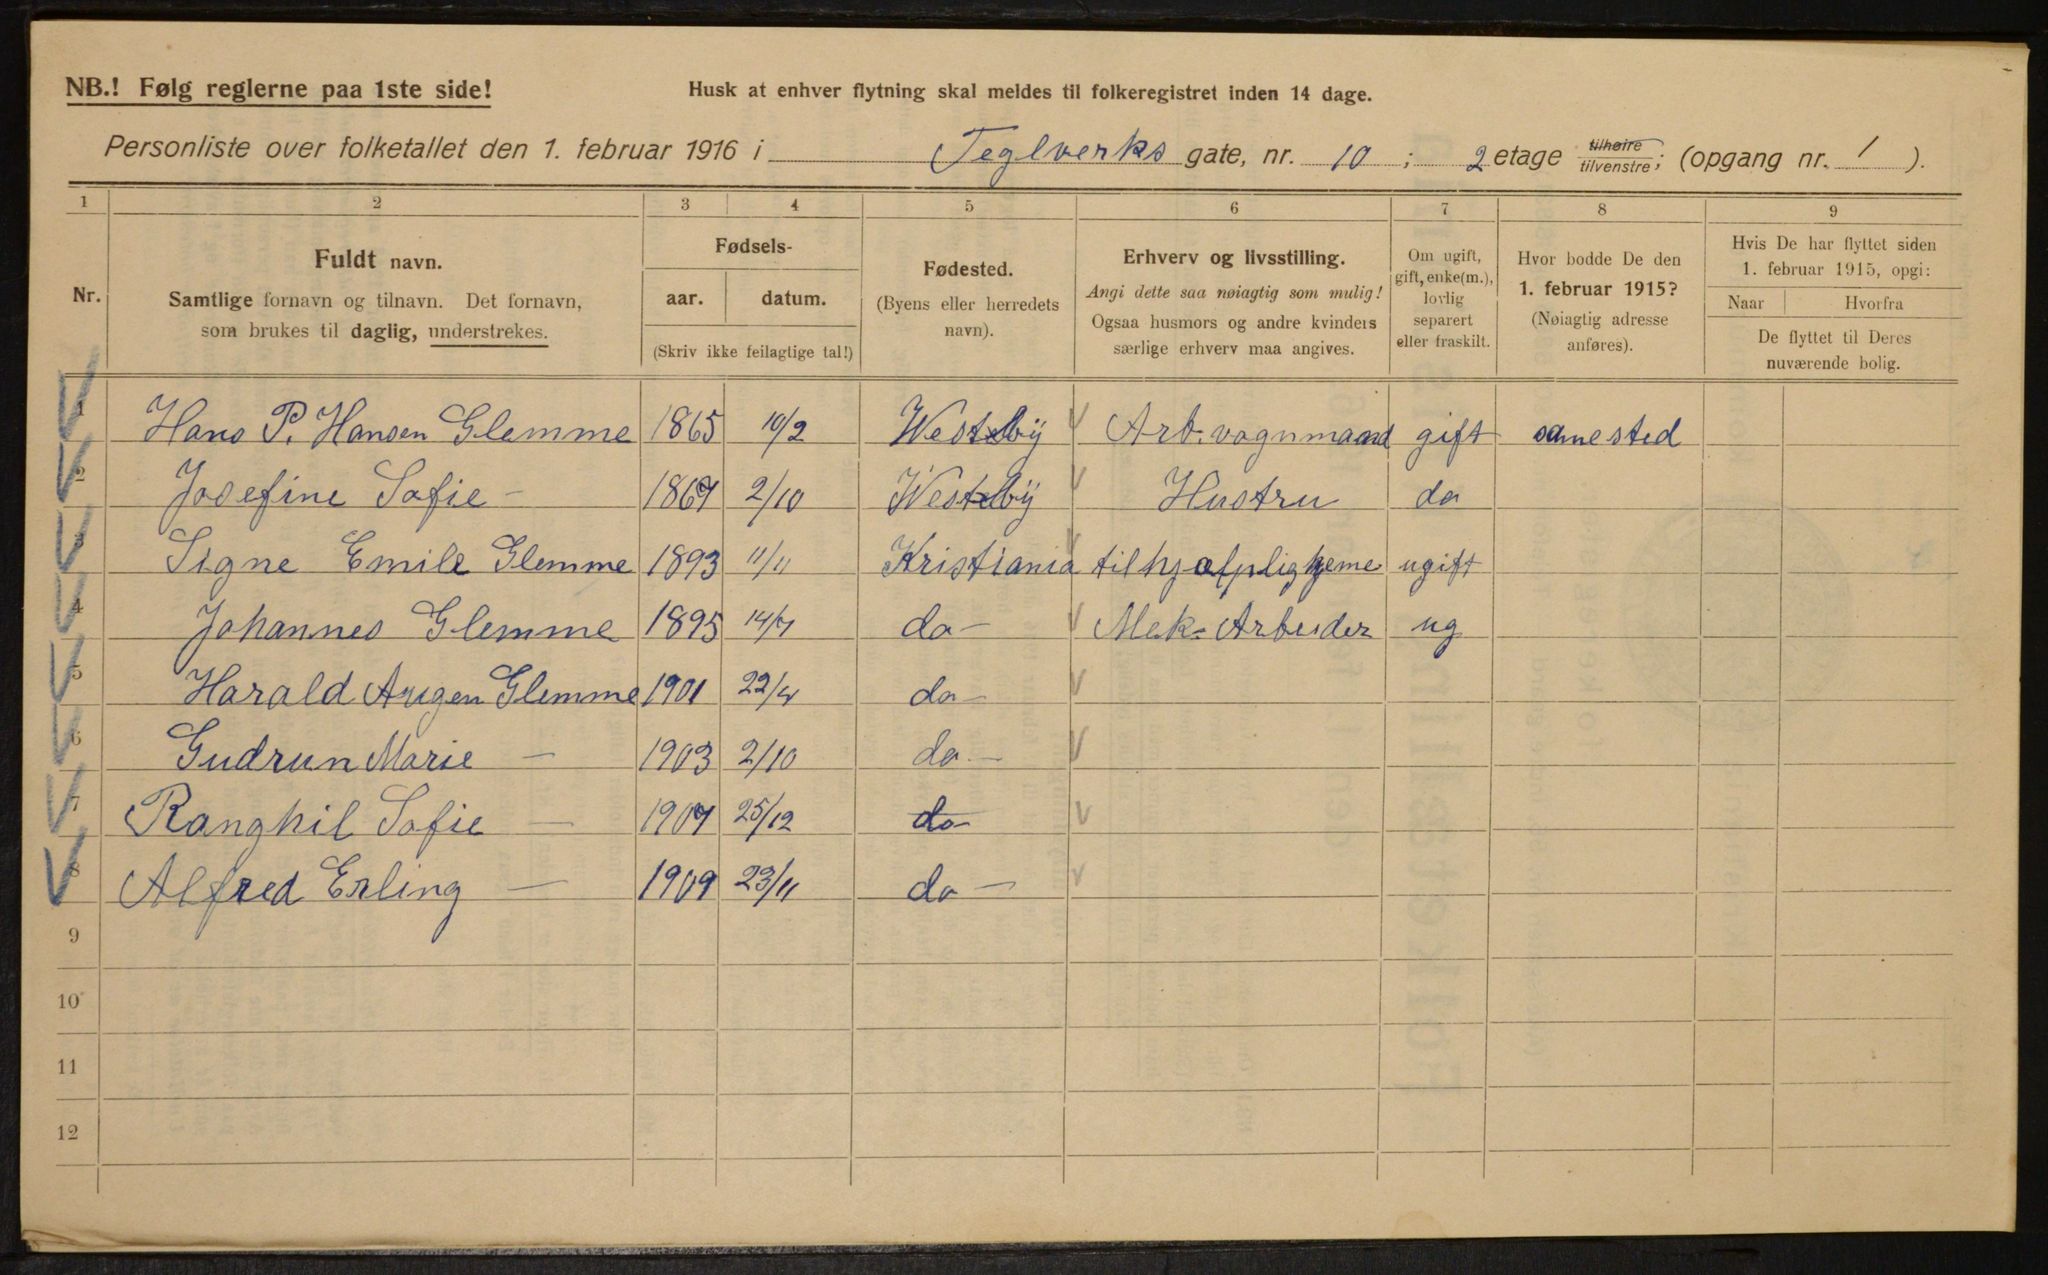 NB.! Følg reglerne paa 1ste side!
Husk at enhver flytning skal meldes til folkeregistret inden 14 dage.
Personliste over folketallet den 1. februar 1916 i Teglverks gate, nr. 10 ; 2 etage tilhøire/tilvenstre; (opgang nr. 1 ).
1 2 3 4 5 6 7 8 9
Nr.
Fuldt navn.
Samtlige fornavn og tilnavn. Det fornavn,
som brukes til daglig, understrekes.
Fødsels-
aar. datum.
(Skriv ikke feilagtige tal!)
Fødested.
(Byens eller herredets
navn).
Erhverv og livsstilling.
Angi dette saa nøiagtig som mulig!
Ogsaa husmors og andre kvinders
særlige erhverv maa angives.
Om ugift,
gift, enke(m.),
lovlig
separert
eller fraskilt.
Hvor bodde De den
1. februar 1915?
(Nøiagtig adresse
anføres).
Hvis De har flyttet siden
1. februar 1915, opgi:
Naar Hvorfra
De flyttet til Deres
nuværende bolig.
1 Hans P. Hansen Glemme 1865 10/2 Westby Arb. vognmand gift samested
2 Josefine Sofie - 1867 2/10 Westby Hustru do
3 Signe Emile Glemme 1893 11/11 Kristiania til hjælp lig hjeme ugift
4 Johannes Glemme 1895 14/7 do - Mek. Arbeider ug
5 Harald Augen Glemme 1901 22/4 do -
6 Gudrun Marie - 1903 2/10 do -
7 Ranghil Sofie - 1907 25/12 do -
8 Alfred Erling - 1909 23/11 do -
9
10
11
12